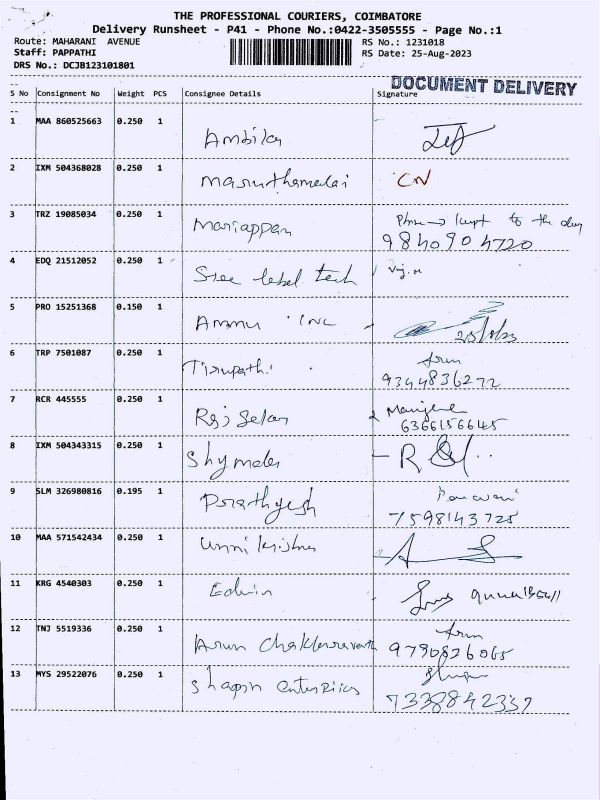 THE PROFESSIONAL COURIERS, COIMBATORE
Delivery Runsheet - P41 - Phone No.:0422-3505555 - Page No.:1
Route: MAHARANI AVENUE RS No.: 1231018
Staff: PAPPATHI RS Date: 25-Aug-2023
DRS No.: DCJB123101801
DOCUMENT DELIVERY
S No Consignment No Weight PCS Consignee Details Signature
1 MAA 860525663 0.250 1 Ambika
2 IXM 504368028 0.250 1 Maruthamalai CN
3 TRZ 19085034 0.250 1 Mariappan
9840904720
4 EDQ 21512052 0.250 1 Sree label tech Vij.m
5 PRO 15251368 0.150 1 Ammu Inc
25/8/23
6 TRP 7501087 0.250 1 Tirupathi Arun
9344836272
7 RCR 445555 0.250 1 Raj Sekar
6366156645
8 IXM 504343315 0.250 1 Shymala
9 SLM 326980816 0.195 1 Prathyesh
7598143725
10 MAA 571542434 0.250 1 Unni krishna
11 KRG 4540303 0.250 1 Edwin
12 TNJ 5519336 0.250 1 Arun Chakkaravarth Arun
9790826065
13 MYS 29522076 0.250 1 Shapin enterprises
7338842337